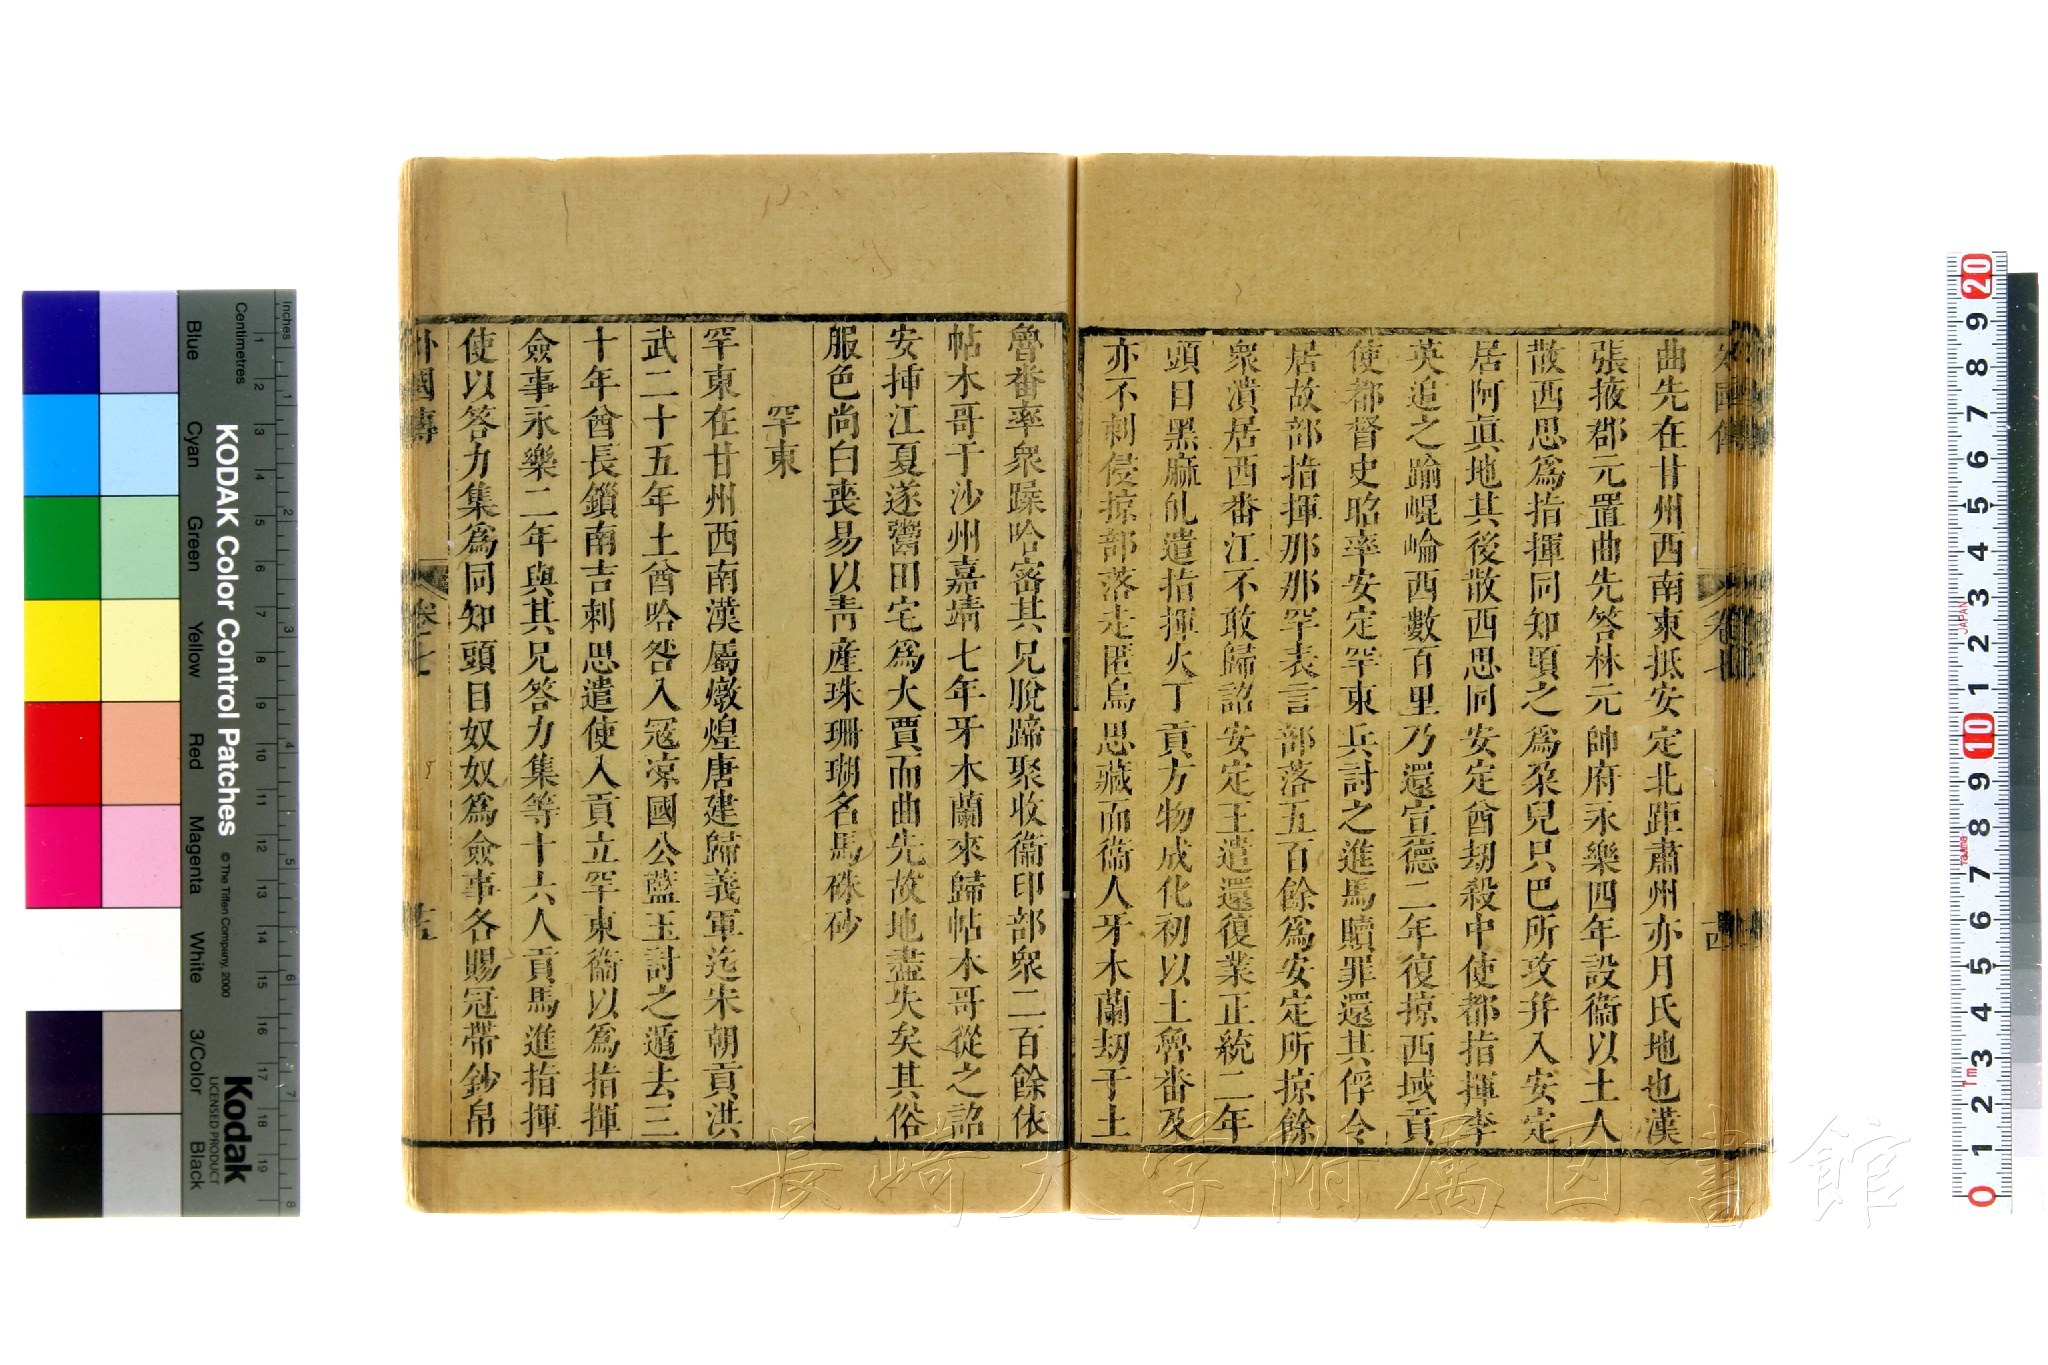 曲先在甘州西南東抵安定北距肅州亦月氏地也漢
張掖郡元置曲先答林元帥府永樂四年設衞以土人
散西思爲指揮同知頃之爲朶兒只巴所攻并入安定
居阿眞地其後散西思同安定酋刼殺中使都指揮李
英追之踰崐崘西數百里乃還宣德二年復掠西域貢
使都督史昭率安定罕東兵討之進馬贖罪還其俘令
居故部指揮那那罕表言部落五百餘爲安定所掠餘
衆潰居西番江不敢歸詔安定王遣還復業正統二年
頭目黑麻乩遣指揮火丁貢方物成化初以土魯番及
亦不剌侵掠部落走匿烏思藏而衞人牙木蘭刼于土
魯番率衆躁哈密其兄脫蹄聚收衞印部衆二百餘依
帖木哥于沙州嘉靖七年牙木蘭來歸帖木哥從之詔
安揷江夏遂鬻田宅爲大賈而曲先故地盡失矣其俗
服色尚白喪易以靑產珠珊瑚名馬硃砂
罕東
罕東在甘州西南漢屬燉煌唐建歸義軍迄宋朝貢洪
武二十五年土酋哈昝入寇凉國公藍玉討之遁去三
十年酋長鎖南吉剌思遣使入貢立罕東衞以爲指揮
僉事永樂二年與其兄答力集等十六人貢馬進指揮
使以答力集爲同知頭目奴奴爲僉事各賜冠帶鈔帛
外國傳
卷之七
長崎大学附属図書館
KODAK Color Control Patches
© The Tiffen Company, 2000
Kodak
LICENSED PRODUCT
Inches
Centimetres
Blue
Cyan
Green
Yellow
Red
Magenta
White
3/Color
Black
JAPAN
Tajima